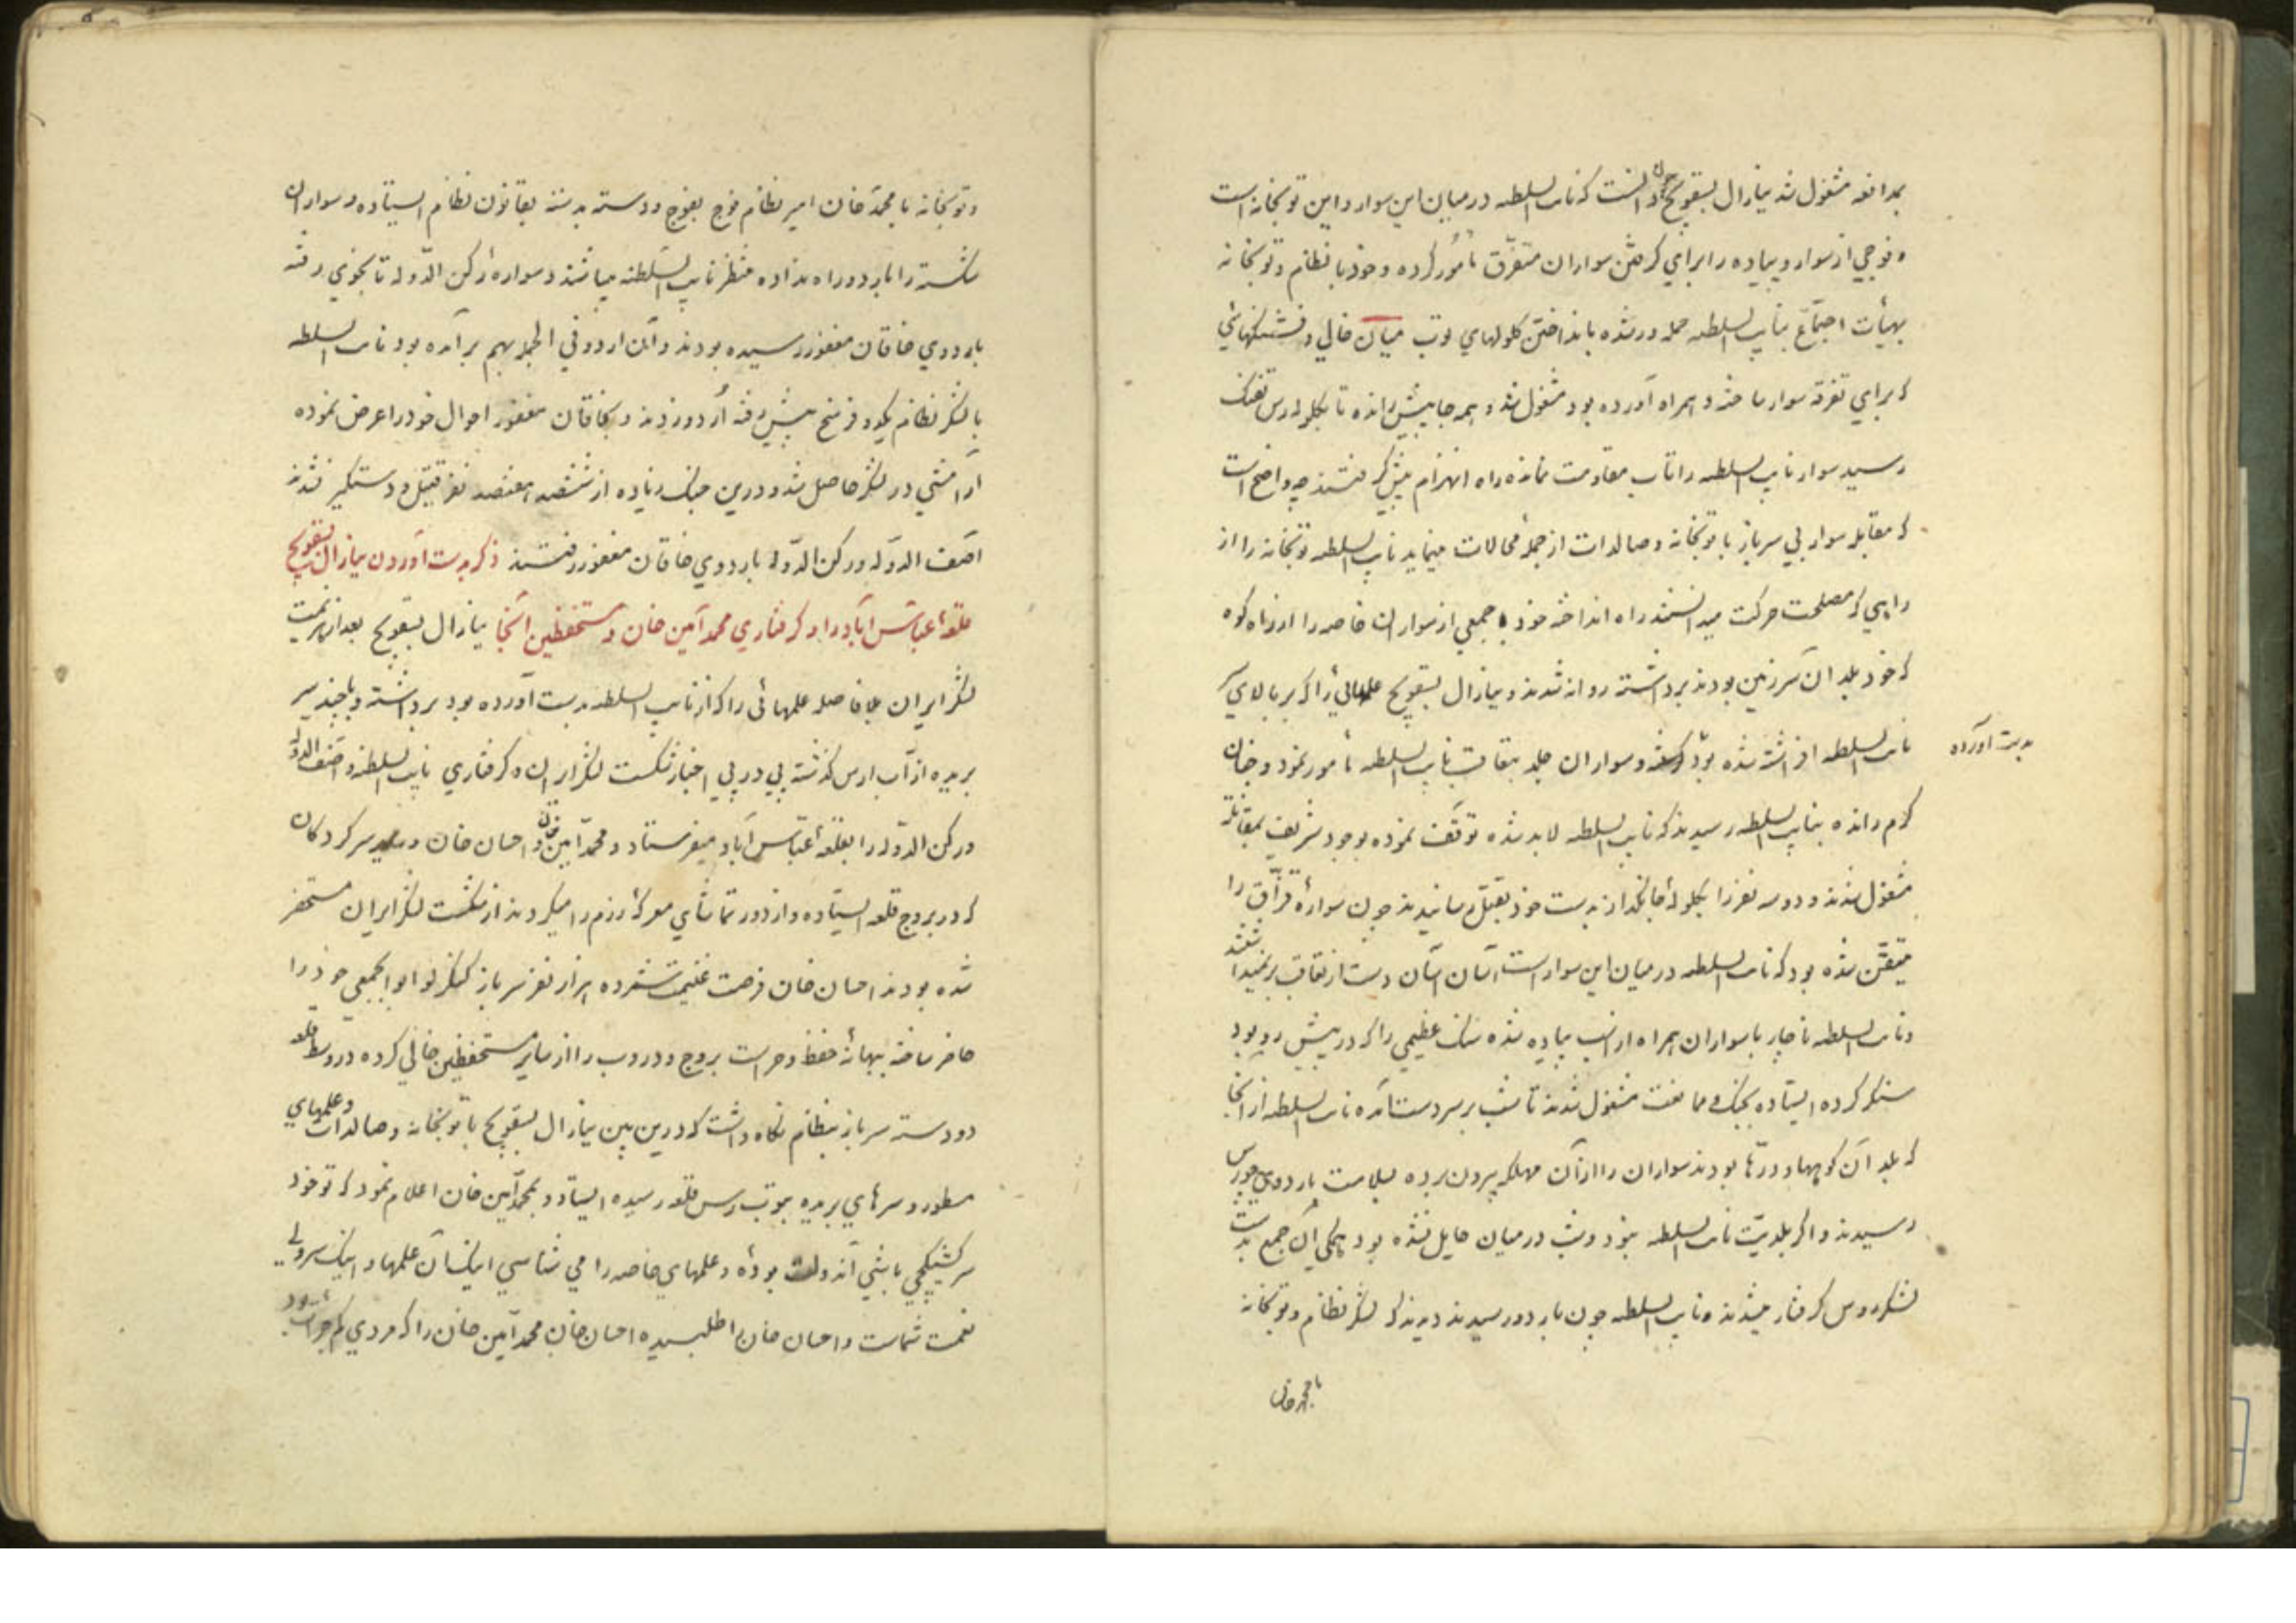 بمدافعه مشغول شد ینارال بسقویج چون دانست که نایب السلطه در میان این سوار و این توپخانه است
و فوجی از سوار و پیاده را برای کرفتن سواران متفرق مأمور کرده و خود با نظام و توپخانه
بهیأت اجتماع بنایب السلطه حمله ور شده بانداختن کلولهای توپ میان خالی و فشنکهائی
که برای تفرقه سوار ساخته و همراه آورده بود مشغول شد و همه جا پیش رانده تا بکلوله رس تفنک
رسید سوار نایب السلطه را تاب مقاومت نمانده راه انهزام پیش کرفتند چه واضح است
که مقابله سوار بی سرباز با توپخانه و صالدات از جمله محالات مینماید نایب السلطه توپخانه را از
راهی که مصلحت حرکت میدانستند راه انداخته خود با جمعی از سواران خاصه را از راه کوه
که خود بلد ان سرزمین بودند برداشته روانه شدند و ینارال بسقویج علمهائی را که بر بالای سر
نایب السلطه افراشته شده بود و سواران جلد بتعاقب نایب السلطه مأمور نمود و چنان
بدست آورده
کرم رانده بنایب السلطه رسیدند که نایب السلطه لابد شده توقف نموده بوجود شریف بمقاتله
مشغول شدند و دو سه نفر را بکلوله جانکداز بدست خود بقتل رسانیدند چون سواره قزاق را
متیقن شده بود که نایب السلطه در میان این سوار است آسان آسان دست از تعاقب برنمیداشتند
و نایب السلطه ناچار با سواران همراه از اسب پیاده شده سنک عظیمی را که در پیش رو بود
سنکر کرده ایستاده بجنک و ممانعت مشغول شدند تا شب بر سر دست آمده نایب السلطه از آنجا
که بلد آن کوهها و درها بودند سواران را از آن مهلکه بیرون برده بسلامت باردوی چورس
رسیدند و اکر بلدیت نایب السلطه نبود و شب در میان حایل نشده بود همکی آن جمع بدست
لشکر روس کرفتار میشدند و نایب السلطه چون باردو رسیدند دیدند که لشکر نظام و توپخانه
با محمد خان
و توپخانه با محمد خان امیر نظام فوج بفوج و دسته بدسته بقانون نظام ایستاده و سواران
شکسته را باردو راه نداده منتظر نایب السلطنه میباشند و سواره رکن الدوله تا بخوی رفته
باردوی خاقان مغفور رسیده بودند و آن اردو فی الجمله بهم برآمده بود نایب السلطه
با لشکر نظام یکدو فرسخ پیش رفته اردو زدند و بخاقان مغفور احوال خود را عرض نموده
آرامشی در لشکر حاصل شد و درین جنک زیاده از ششصد هفتصد نفر قتیل و دستکیر نشدند
اصف الدوله و رکن الدوله باردوی خاقان مغفور رفتند ذکر بدست آوردن ینارال بسقویج
قلعه عباس آباد را و کرفتاری محمد امین خان و مستحفظین آنجا ینارال بسقویج بعد از هزیمت
لشکر ایران بلا فاصله علمهائی را که از نایب السلطه بدست آورده بود برداشته و با چند سر
بریده از آب ارس کذشته پی در پی اخبار شکست لشکر ایران و کرفتاری نایب السلطنه و اصف الدوله
و رکن الدوله را بقلعه عباس آباد میفرستاد و محمد امین خان و احسان خان و سایر سرکردکان
که در بروج قلعه ایستاده و از دور تماشای معرکه رزم را میکردند از شکست لشکر ایران مستحضر
شده بودند احسان خان فرصت غنیمت شمرده هزار نفر سرباز کنکرلو ابوابجمعی خود را
حاضر ساخته ببهانه حفظ و حراست بروج و دروب را از سایر مستحفظین خالی کرده در وسط قلعه
دو دسته سرباز بنظام نکاه داشت که درین بین ینارال بسقویج با توپخانه و صالدات و علمهای
مسطور و سرهای بریده بتوپ رس قلعه رسیده ایستاد و بمحمد امین خان اعلام نمود که تو خود
سرکشیکچی باشی آندولت بوده و علمهای خاصه را می شناسی اینک آن علمها و اینک سر ولی
نعمت شماست و احسان خان را طلبیده احسان خان محمد امین خان را که مردی کم جرأت بود